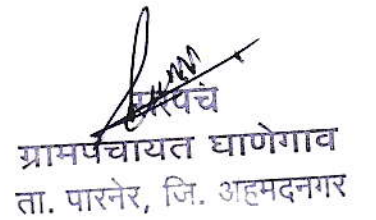 सरपंच
ग्रामपंचायत घाणेगाव
ता. पारनेर, जि. अहमदनगर